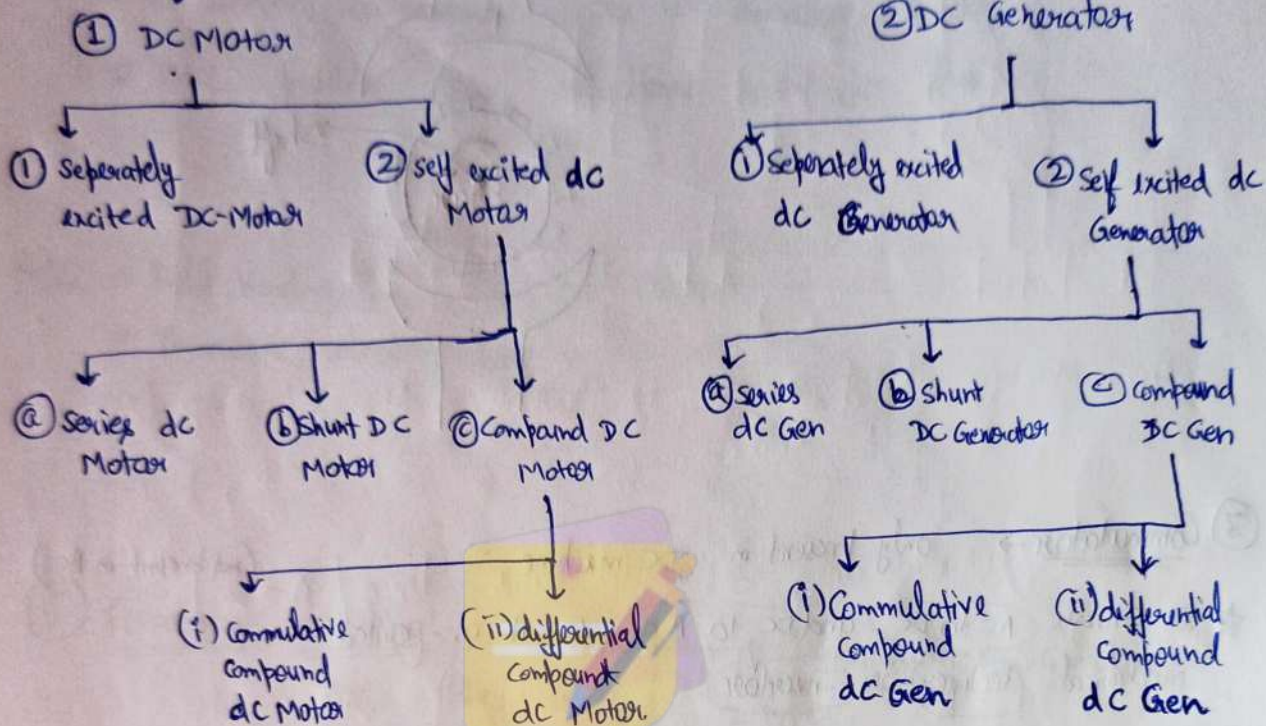 ① DC Motor
① Seperately
excited DC-Motor
② self excited dc
Motor
ⓐ series dc
Motor
ⓑ Shunt DC
Motor
ⓒ Compound DC
Motor
(i) Commulative
Compound
dc Motor
(ii) differential
Compound
dc Motor
② DC Generator
① Seperately excited
dc Generator
② Self excited dc
Generator
ⓐ series
dc Gen
ⓑ Shunt
DC Generator
ⓒ Compound
DC Gen
(i) Commulative
Compound
dc Gen
(ii) differential
Compound
dc Gen